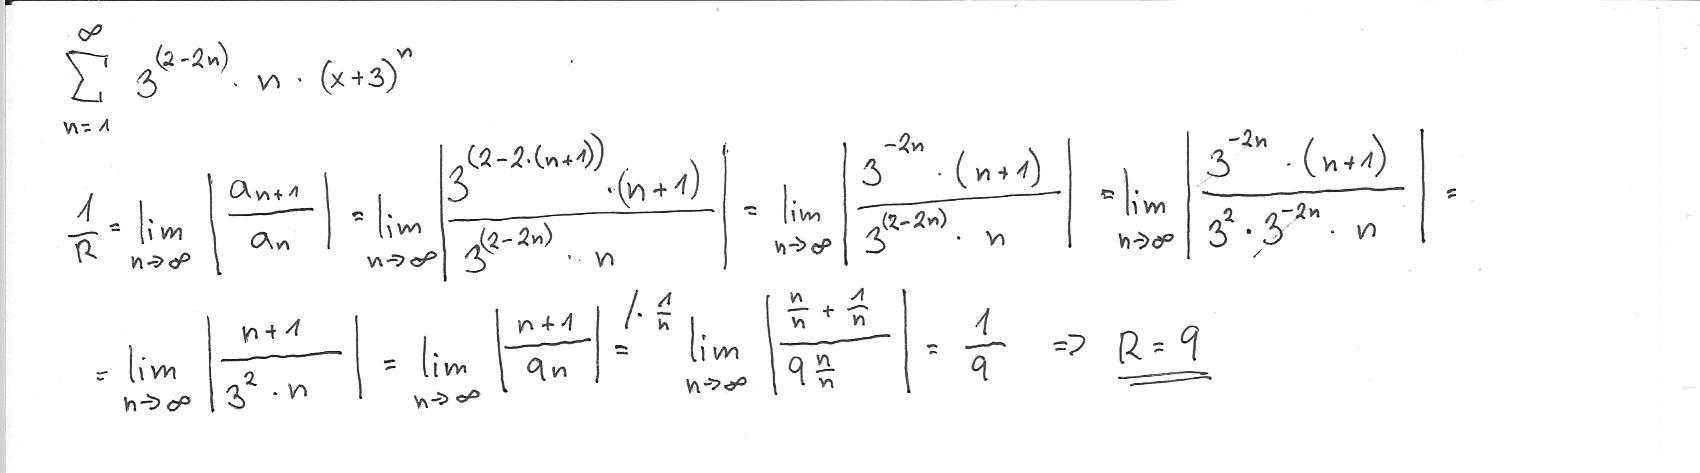 ∞
∑ 3^(2-2n) · n · (x+3)^n
n=1
1/R = lim n→∞ |a_{n+1}/a_n| = lim n→∞ |3^(2-2·(n+1)) · (n+1) / 3^(2-2n) · n| = lim n→∞ |3^{-2n} · (n+1) / 3^(2-2n) · n| = lim n→∞ |3^{-2n} · (n+1) / 3^2 · 3^{-2n} · n| =
= lim n→∞ |n+1 / 3^2 · n| = lim n→∞ |n+1 / 9n| /· 1/n = lim n→∞ |n/n + 1/n / 9 n/n| = 1/9 => R = 9